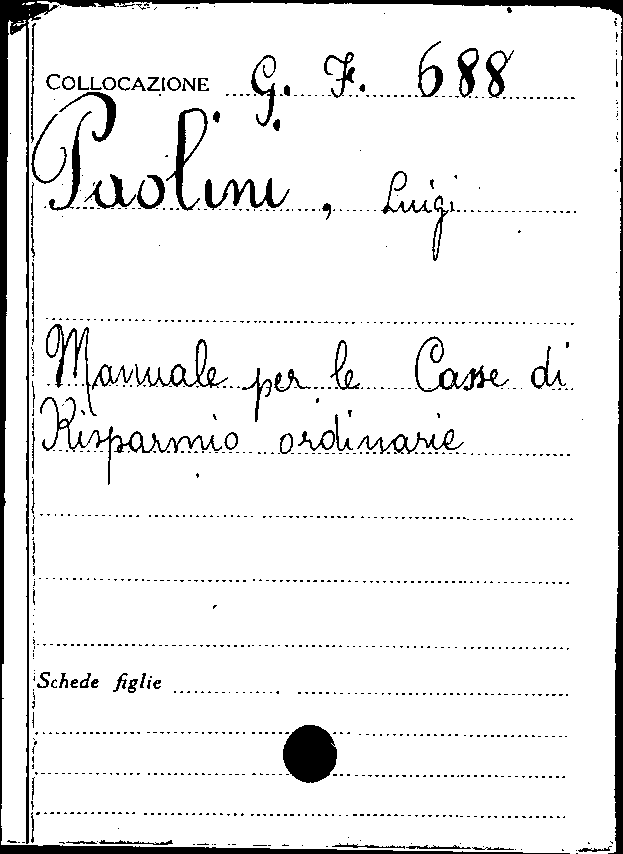 COLLOCAZIONE G. F. 688
Paolini, Luigi
Manuale per le Casse di
Risparmio ordinarie
Schede figlie